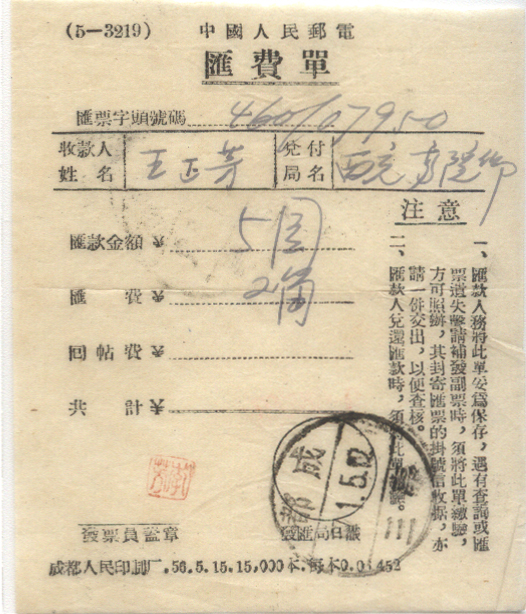 (5—3219) 中國人民郵電
匯費單
匯票字頭號碼 460/07950
收款人姓名 王正芳 兌付局名
注意
匯款金額 5圆
匯費 2角
回帖費
共計
一、匯款人務將此單妥爲保存，遇有查詢或匯
票遺失聲請補發副票時，須將此單繳驗，
方可照辦，其封寄匯票的掛號信收據，亦
請一併交出，以便查核。
二、匯款人兌還匯款時，須
成都
四川
發票員蓋章
發匯局日戳
成都人民印刷厂.56.5.15.15,000本.每本0.0